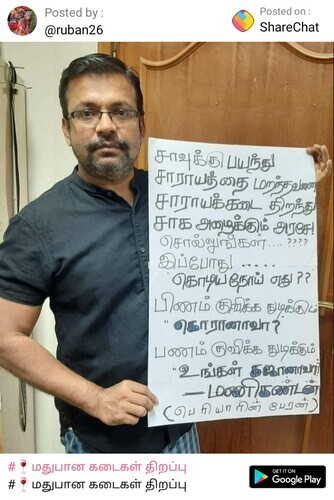 Posted by :
@ruban26
Posted on :
ShareChat
சாவுக்கு பயந்து
சாராயத்தை மறந்தவனை
சாராயக்கடை திறந்து
சாக அழைக்கும் அரசே!
சொல்லுங்கள்.... ????
இப்போது .....
"கொடிய நோய் எது??
பிணம் குவிக்க துடிக்கும்
"கொரானாவா?"
பணம் குவிக்க துடிக்கும்
"உங்கள் கஜானாவா?
— மணிகண்டன்
(பெரியாரின் பேரன்)
#🍷மதுபான கடைகள் திறப்பு
#🍷மதுபான கடைகள் திறப்பு
GET IT ON
Google Play